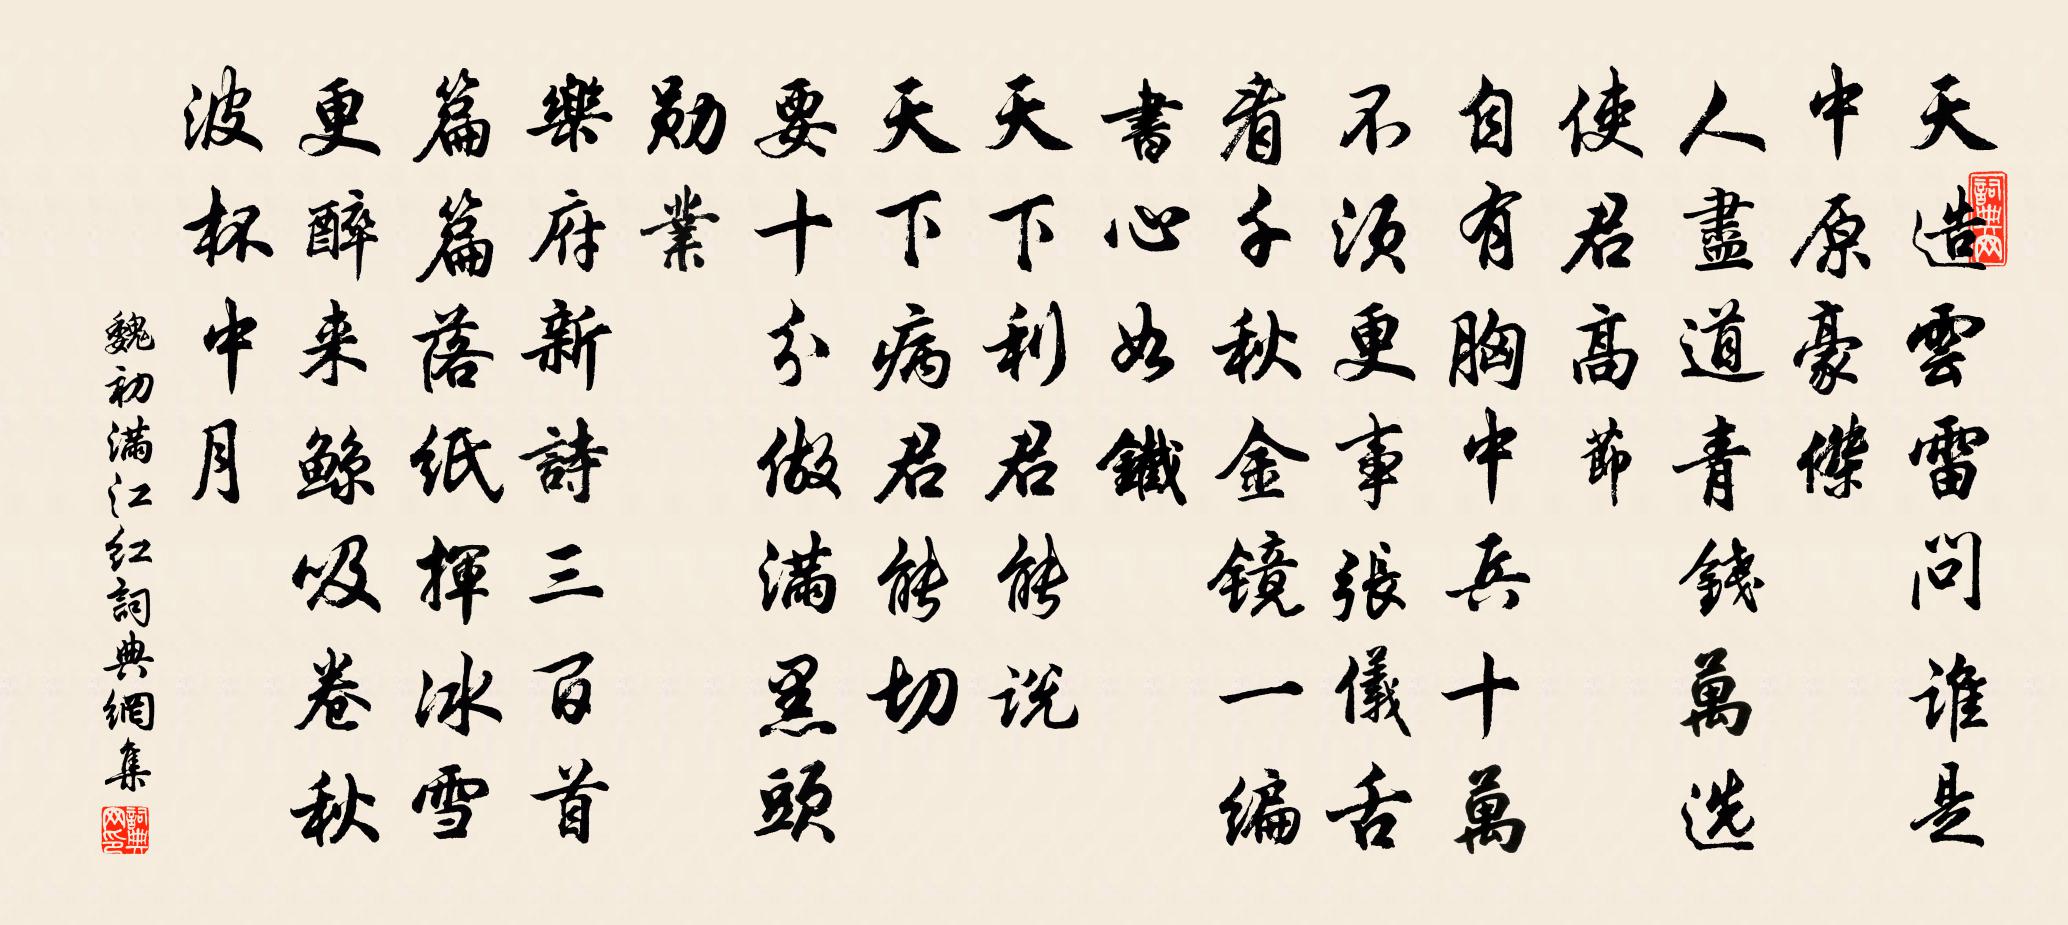 天造雲雷問誰是
中原豪傑
人盡道青錢萬选
使君高節
自有胸中兵十萬
不須更事張儀舌
看千秋金镜一编
書心如鐵
天下利君能说
天下病君能切
要十分做满黑頭
勋業
樂府新詩三百首
篇篇落纸揮冰雪
更醉来鲸吸卷秋
波杯中月
魏初满江红詞典網集
詞典网
詞典网印